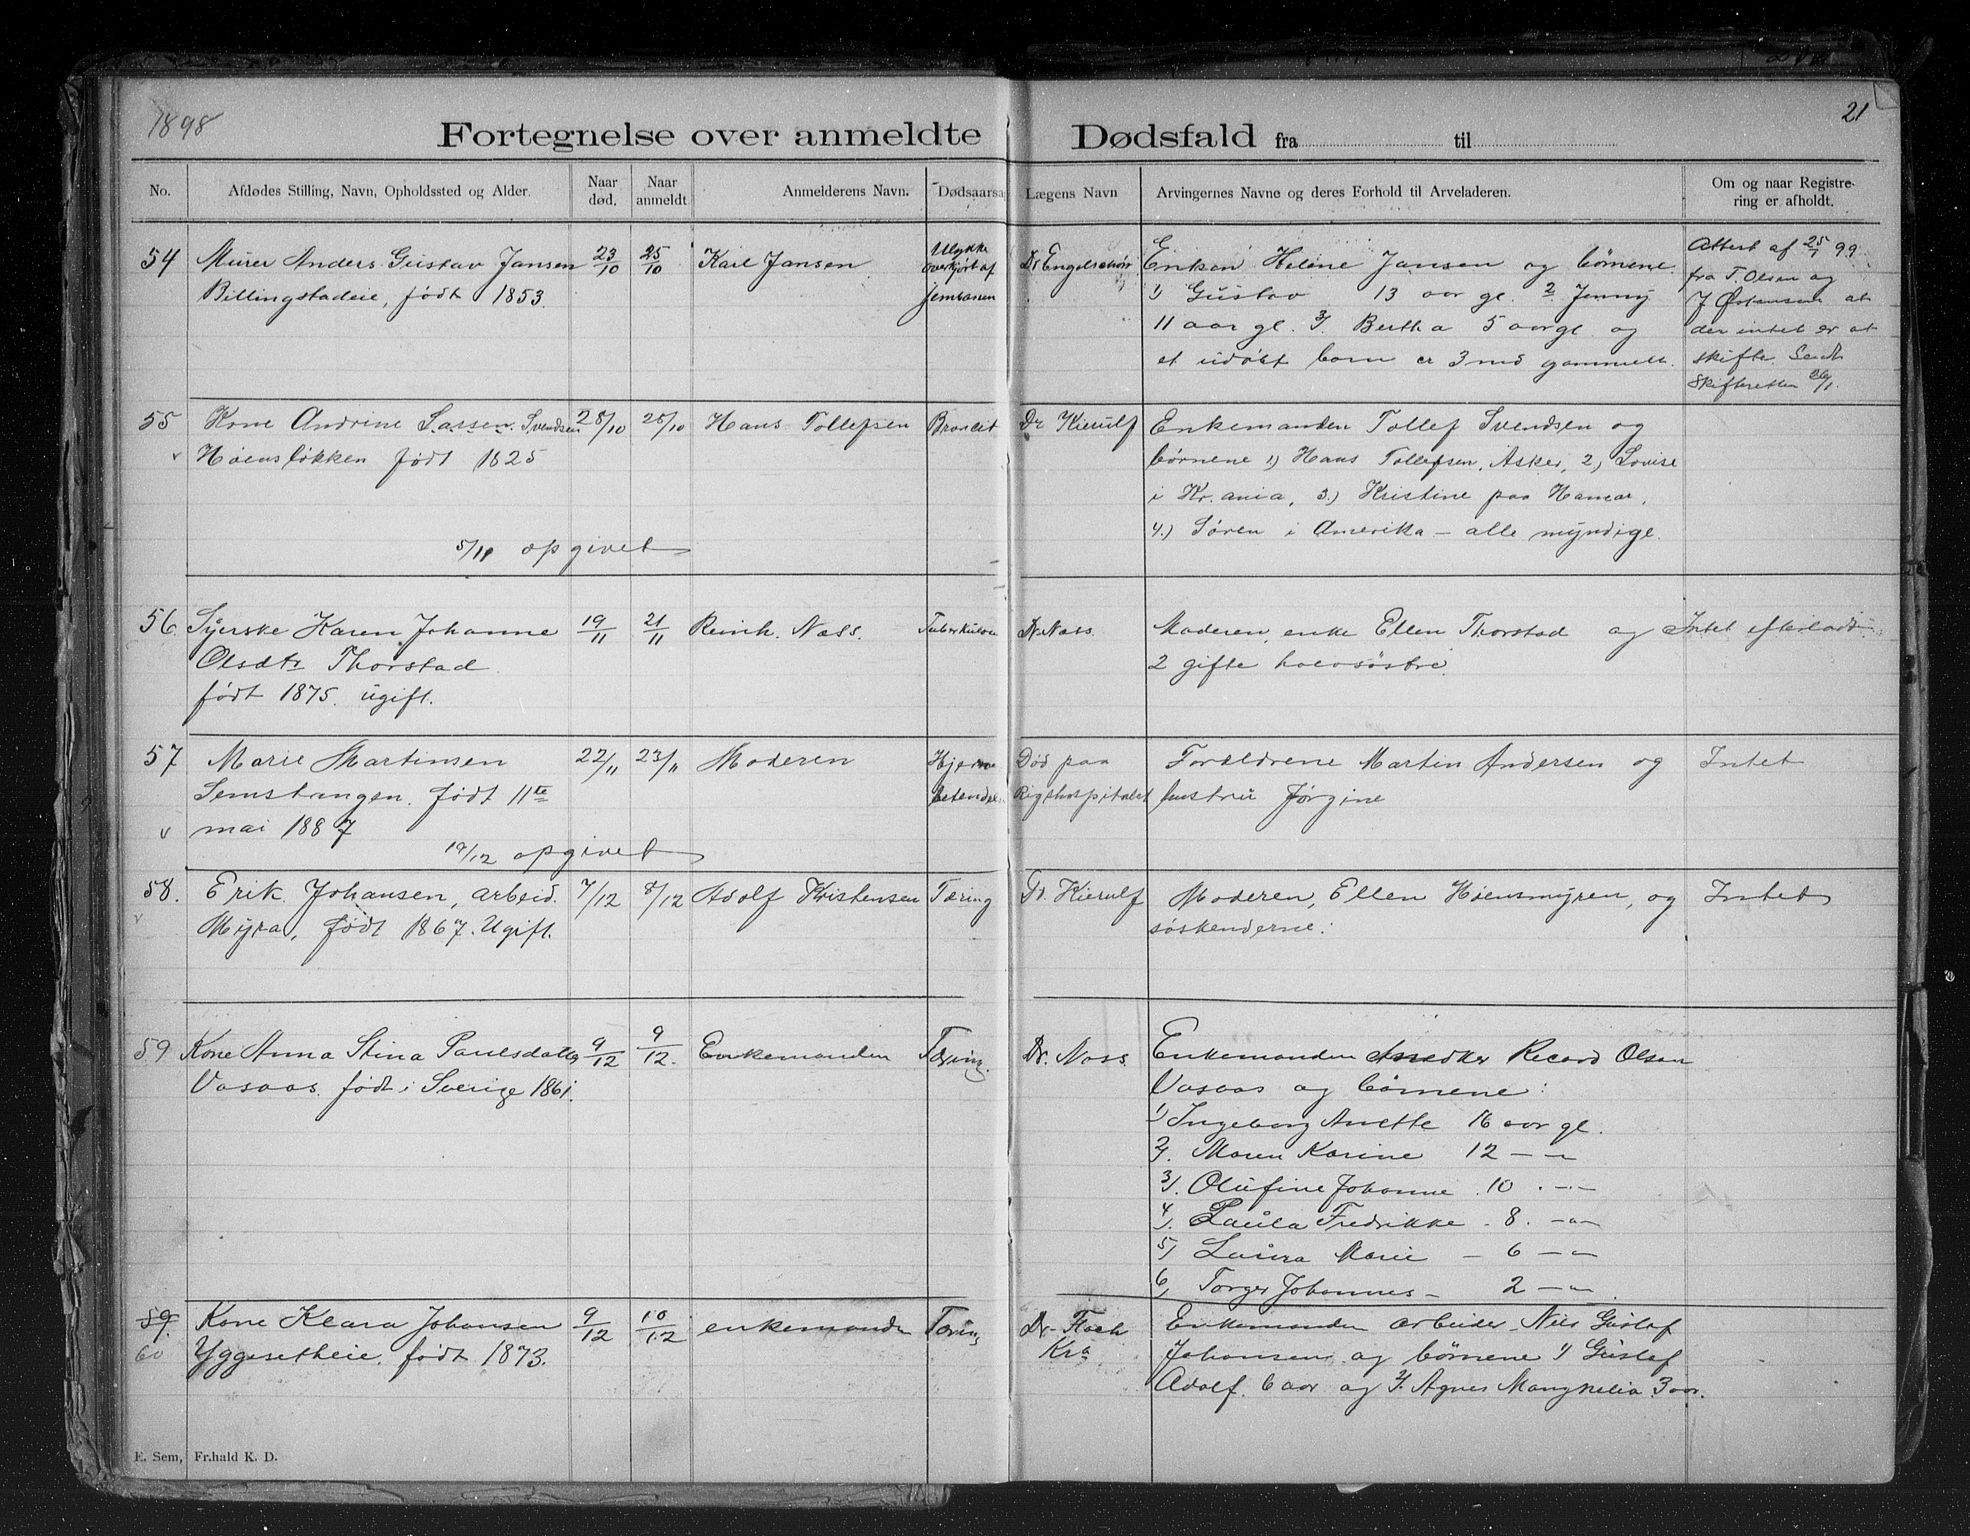 1898
21
Fortegnelse over anmeldte Dødsfald fra til
No. Afdødes Stilling, Navn, Opholdssted og Alder. Naar død. Naar anmeldt Anmelderens Navn. Dødsaarsa Lægens Navn Arvingernes Navne og deres Forhold til Arveladeren. Om og naar Registrering er afholdt.
54 Murer Anders Gustav Jansen 23/10 25/10 Karl Jansen
Billingstadeie, født 1853.
Ulykke
overkjørt af
jernbanen
Dr Engelschiøn
Enken Helene Jansen og børnene
1) Gustav 13 aar gl. 2 Jenny
11 aar gl. 3/ Bertha 5 aar gl og
et udøbt barn er 3 md gammelt.
Attest af 25/1 99
fra T. Olsen og
J Østensen at
der intet er at
skifte. Sendt
Skifteretten 26/1.
55 Kone Andrine Lassen Svendsen 28/10 25/10 Hans Tollefsen Broncit Dr Kierulf
v Høensløkken født 1825
5/11 opgivet
Enkemanden Tollef Svendsen og
børnene 1) Hans Tollefsen, Asker, 2) Lovise
i Kr.ania, 3.) Kristine paa Hamar,
4.) Søren i Amerika – alle myndige.
56. Syerske Karen Johanne 19/11 21/11 Reinh. Næss. Tuberkulose Dr. Næss.
Olsdtr Thorstad
født 1875. ugift.
Moderen, enke Ellen Thorstad og
2 gifte halvsøstre.
Intet efterladt
57 Marie Martinsen 22/11 23/11 Moderen
Semstangen. født 11te
v mai 1887
19/12 opgivet
Hjerne
betendel.
Død paa
Rigshospitalet
Forældrene Martin Andersen og
hustru Jørgine
Intet
58. Erik Johansen, arbeid. 7/12 8/12 Adolf Kristensen Tæring Dr. Kierulf
v Myra, født 1867. Ugift.
Moderen, Ellen Høensmyren, og
søskenderne.
Intet
59 Kone Anna Stina Paulsdatter 9/12 9/12. Enkemanden Tæring. Dr. Næss.
Vasaas. født i Sverige 1861.
Enkemanden Recard Olsen
Vasaas og børnene:
1) Ingeborg Anette 16 aar gl.
2/. Maren Karine 12 – „ –
3/. Olufine Johanne . 10 . – „ –
4/. Laula Fredrikke . 8. – „ –
5/ Laura Marie – 6 – „ –
6, Torger Johannes – 2 – „ – .
59. Kone Klara Johansen 9/12 10/12 enkemanden Tæring Dr. Floch
60 Yggesetheie. født 1873.
Kra
Enkemanden arbeider Nils Gustaf
Johansen og børnene 1/ Gustaf
Adolf. 6 aar og 2/. Agnes 3 aar.
E. Sem, Fr.hald K. D.